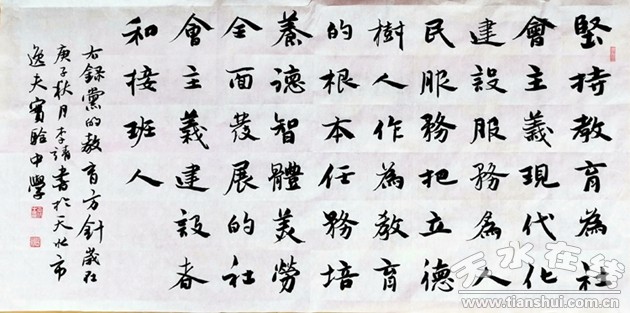 堅持教育為社
會主義現代化
建設服務為人
民服務把立德
樹人作為教育
的根本任務培
養德智體美勞
全面發展的社
會主義建設者
和接班人
右錄黨的教育方針歲在
庚子秋月李靖書於天水市
逸夫實驗中學
天水在线
www.tianshui.com.cn